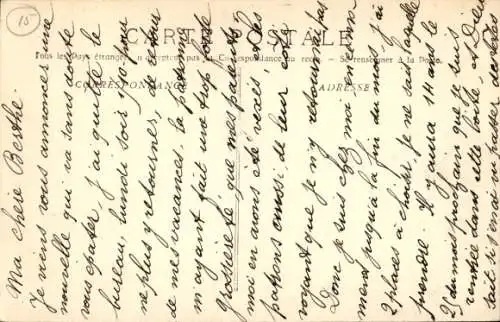 15
CARTE POSTALE
Tous les Pays étrangers n'acceptent pas la Correspondance au recto. - Se renseigner à la Poste.
CORRESPONDANCE
ADRESSE
Ma chère Berthe.
Je viens vous annoncer une
nouvelle qui va sans doute
vous épater, j'ai quitté le
bureau, lundi soir 30 pour
ne plus y retourner, de retour
de mes vacances, la patronne
m'ayant fait une trop forte
grossièreté, que mes parents et
moi en avons été vexés et les
patrons aussi de leur côté
voyant que je n'y retournais pas
Donc je suis chez moi en ce mo-
ment jusqu'à la fin du mois, j'ai
2 places à choisir, je ne sais laquelle
prendre. Il y aura 14 ans le
25 du mois prochain que je suis
rentrée dans cette boîte, et Dieu
sait si j'en